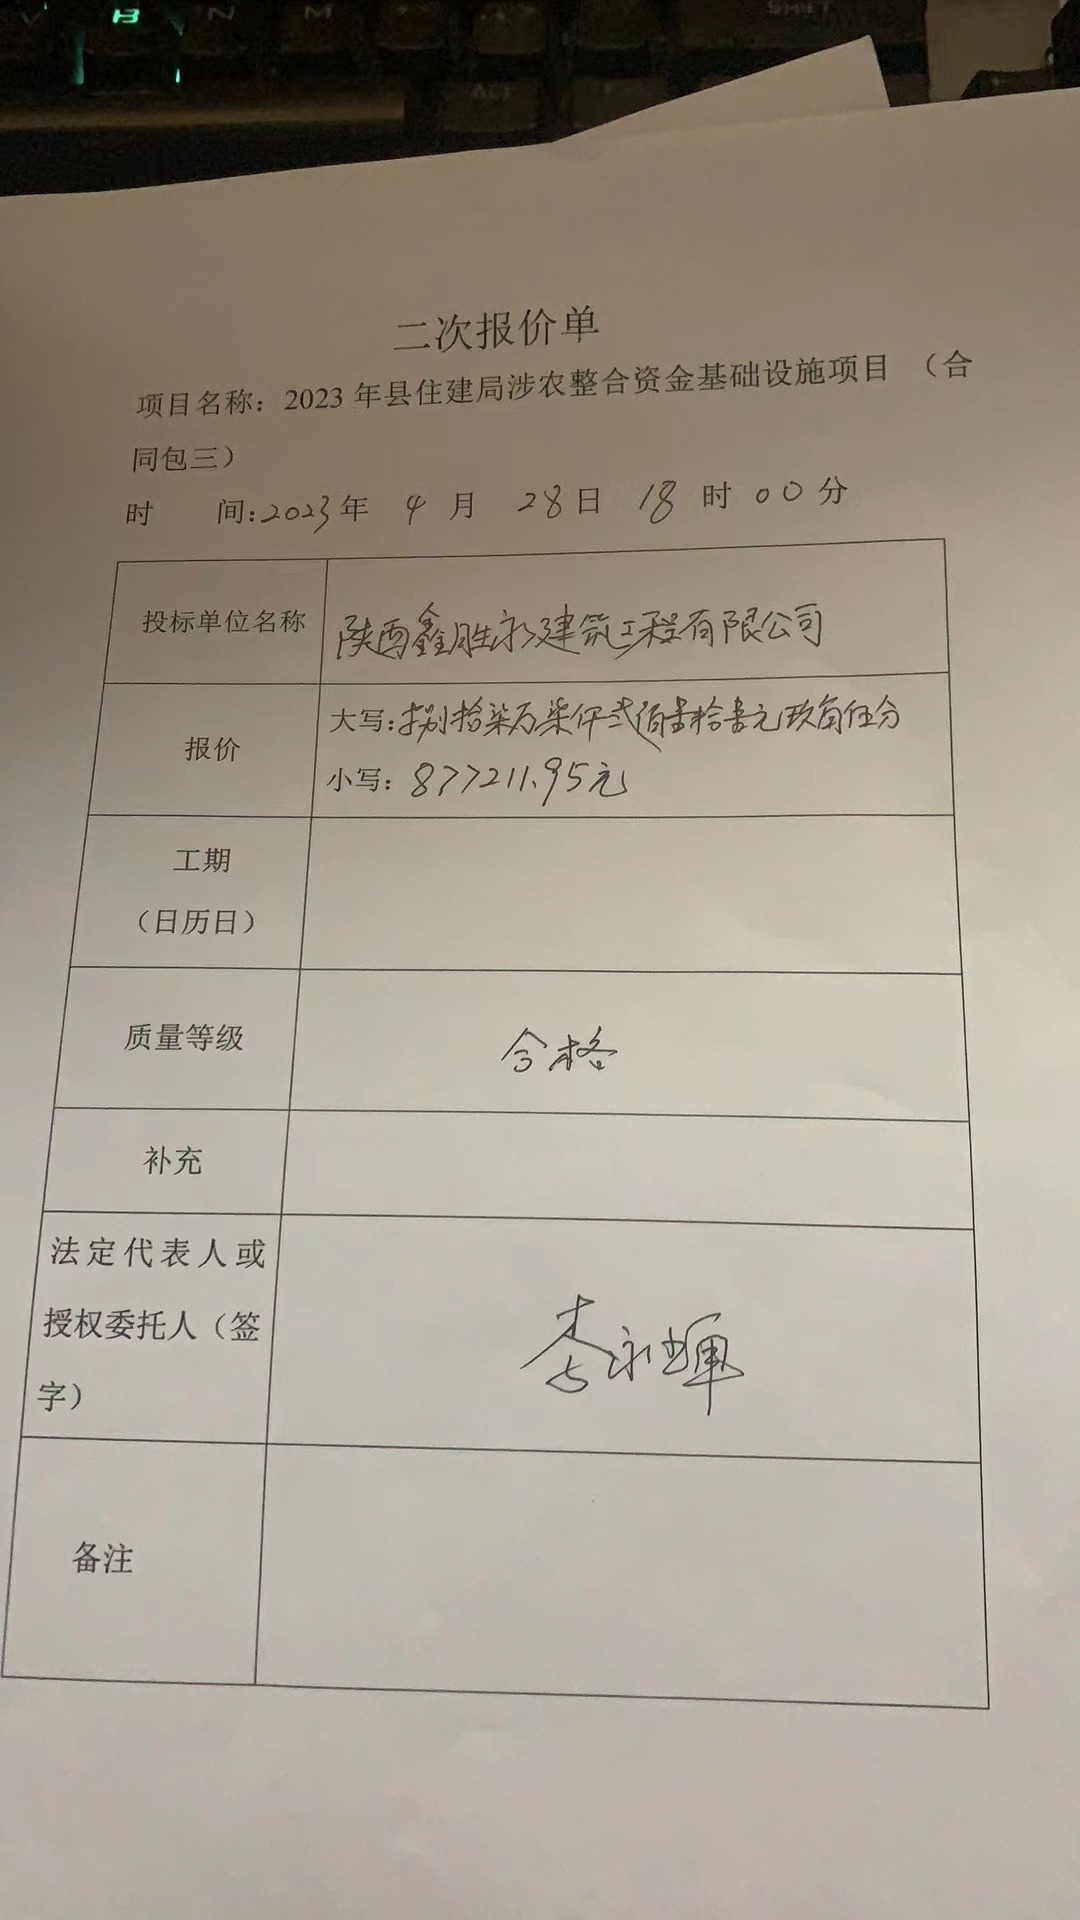 B N M
SHIFT
ALT
二次报价单
项目名称：2023年县住建局涉农整合资金基础设施项目（合
同包三）
时 间：2023年 4 月 28日 18 时 00分
投标单位名称 陕西鑫胜永建筑工程有限公司
报价 大写：捌拾柒万柒仟贰佰壹拾壹元玖角伍分
小写：877211.95元
工期
（日历日）
质量等级 合格
补充
法定代表人或
授权委托人（签
字）
李永辉
备注